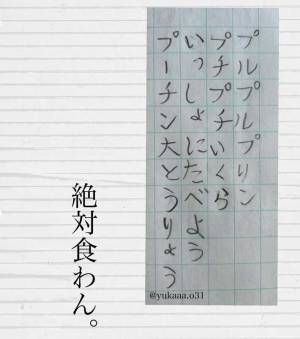 プルプルプりン
プチプチいくら
いっしょにたべよう
プーチン大とうりょう
絶対食わん。
@yukaaa.o31